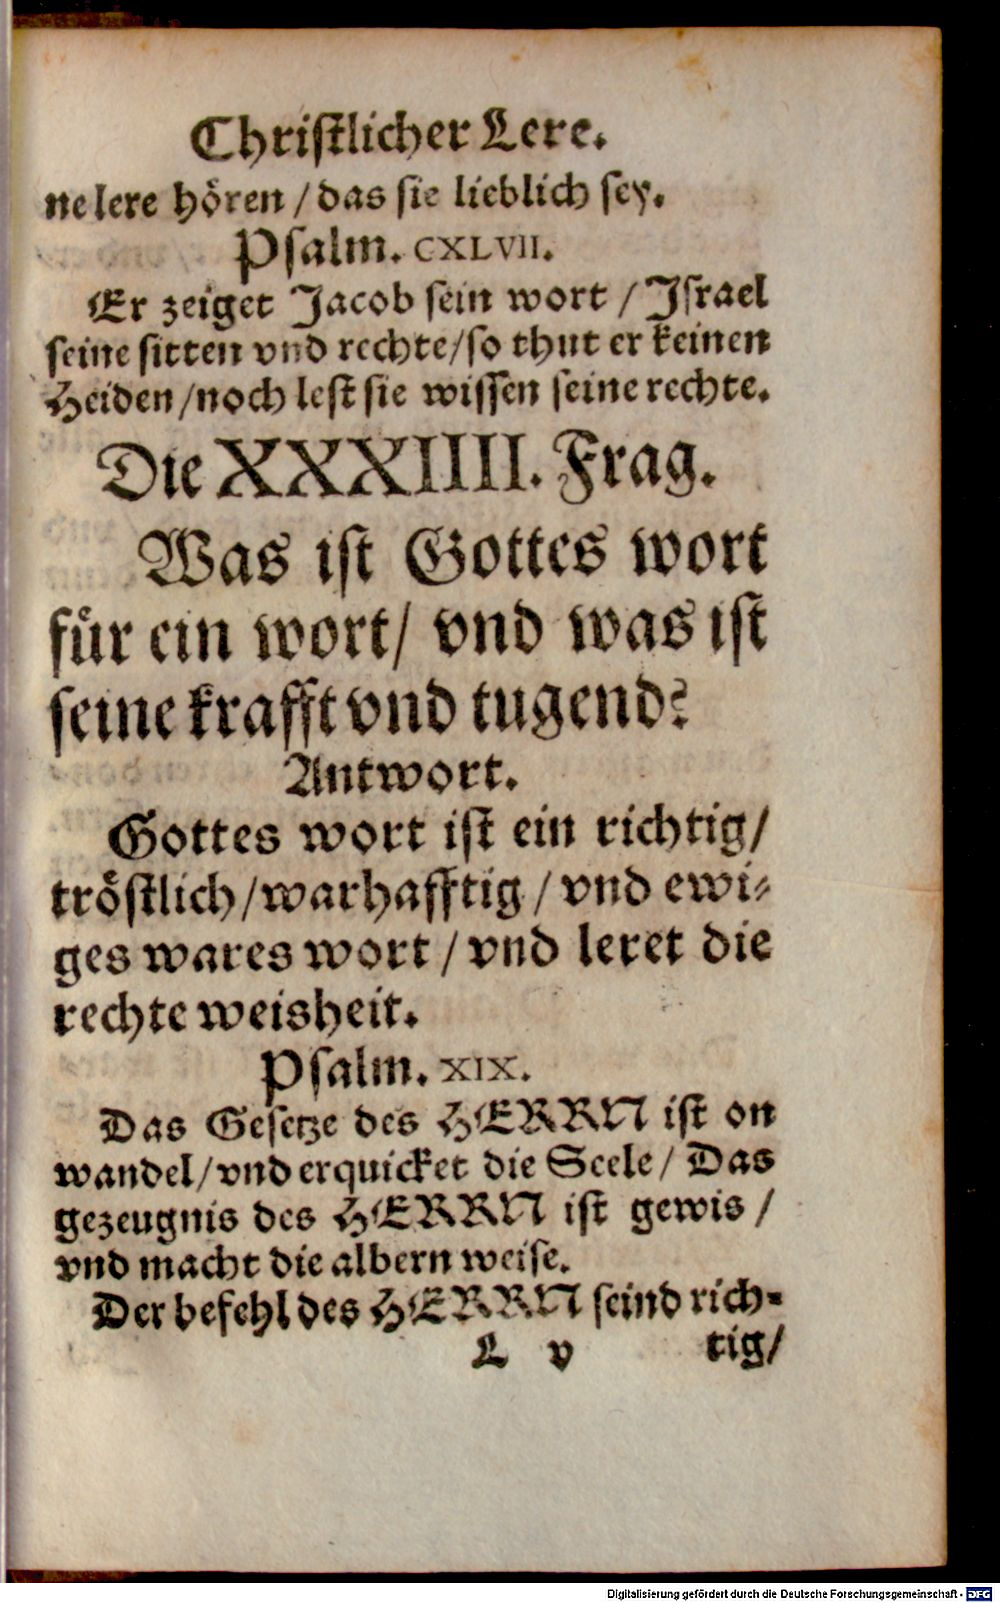 Chriſtlicher Lere.
ne lere hören / das sie lieblich sey.
Psalm. CXLVII.
Er zeiget Jacob sein wort / Jſrael
seine sitten vnd rechte / so thut er keinen
Heiden / noch leſt sie wiſſen seine rechte.
Die XXXIIII. Frag.
Was iſt Gottes wort
für ein wort / vnd was iſt
ſeine krafft vnd tugend?
Antwort.
Gottes wort iſt ein richtig /
tröſtlich / warhafftig / vnd ewi⸗
ges wares wort / vnd leret die
rechte weisheit.
Pſalm. XIX.
Das Geſetze des HERRN iſt on
wandel / vnd erquicket die Seele / Das
gezeugnis des HERRN iſt gewis /
vnd macht die albern weiſe.
Der befehl des HERRN seind rich⸗
L v tig /
Digitalisierung gefördert durch die Deutsche Forschungsgemeinschaft - DFG